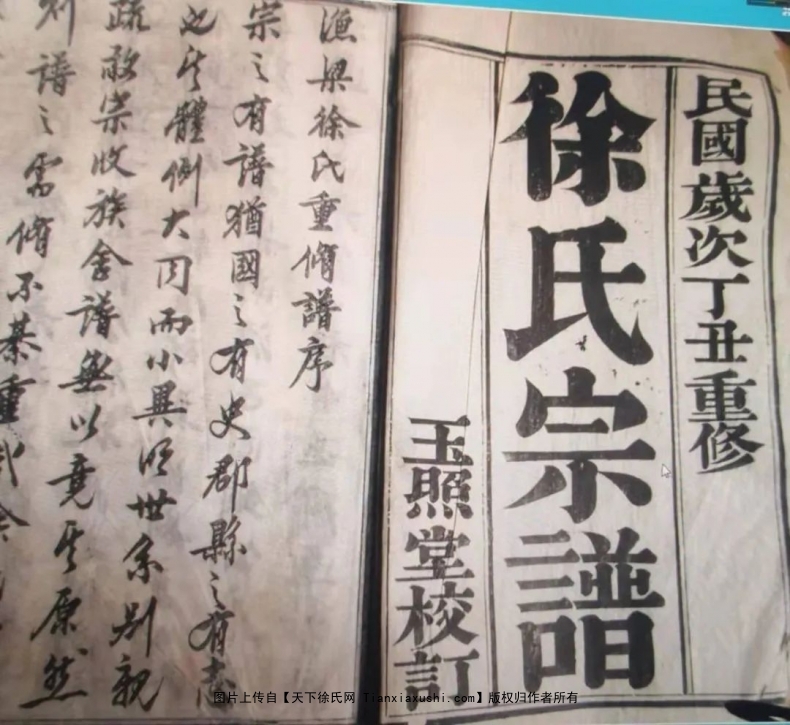 民國歲次丁丑重修
徐氏宗譜
玉照堂校訂
漁梁徐氏重脩譜序
宗之有譜猶國之有史郡縣之有志
也其體例大同而小異明世系别親
疏敬宗收族舍譜無以竟其原然
則譜之需脩不綦重哉
图片上传自【天下徐氏网 Tianxiaxushi.com】版权归作者所有